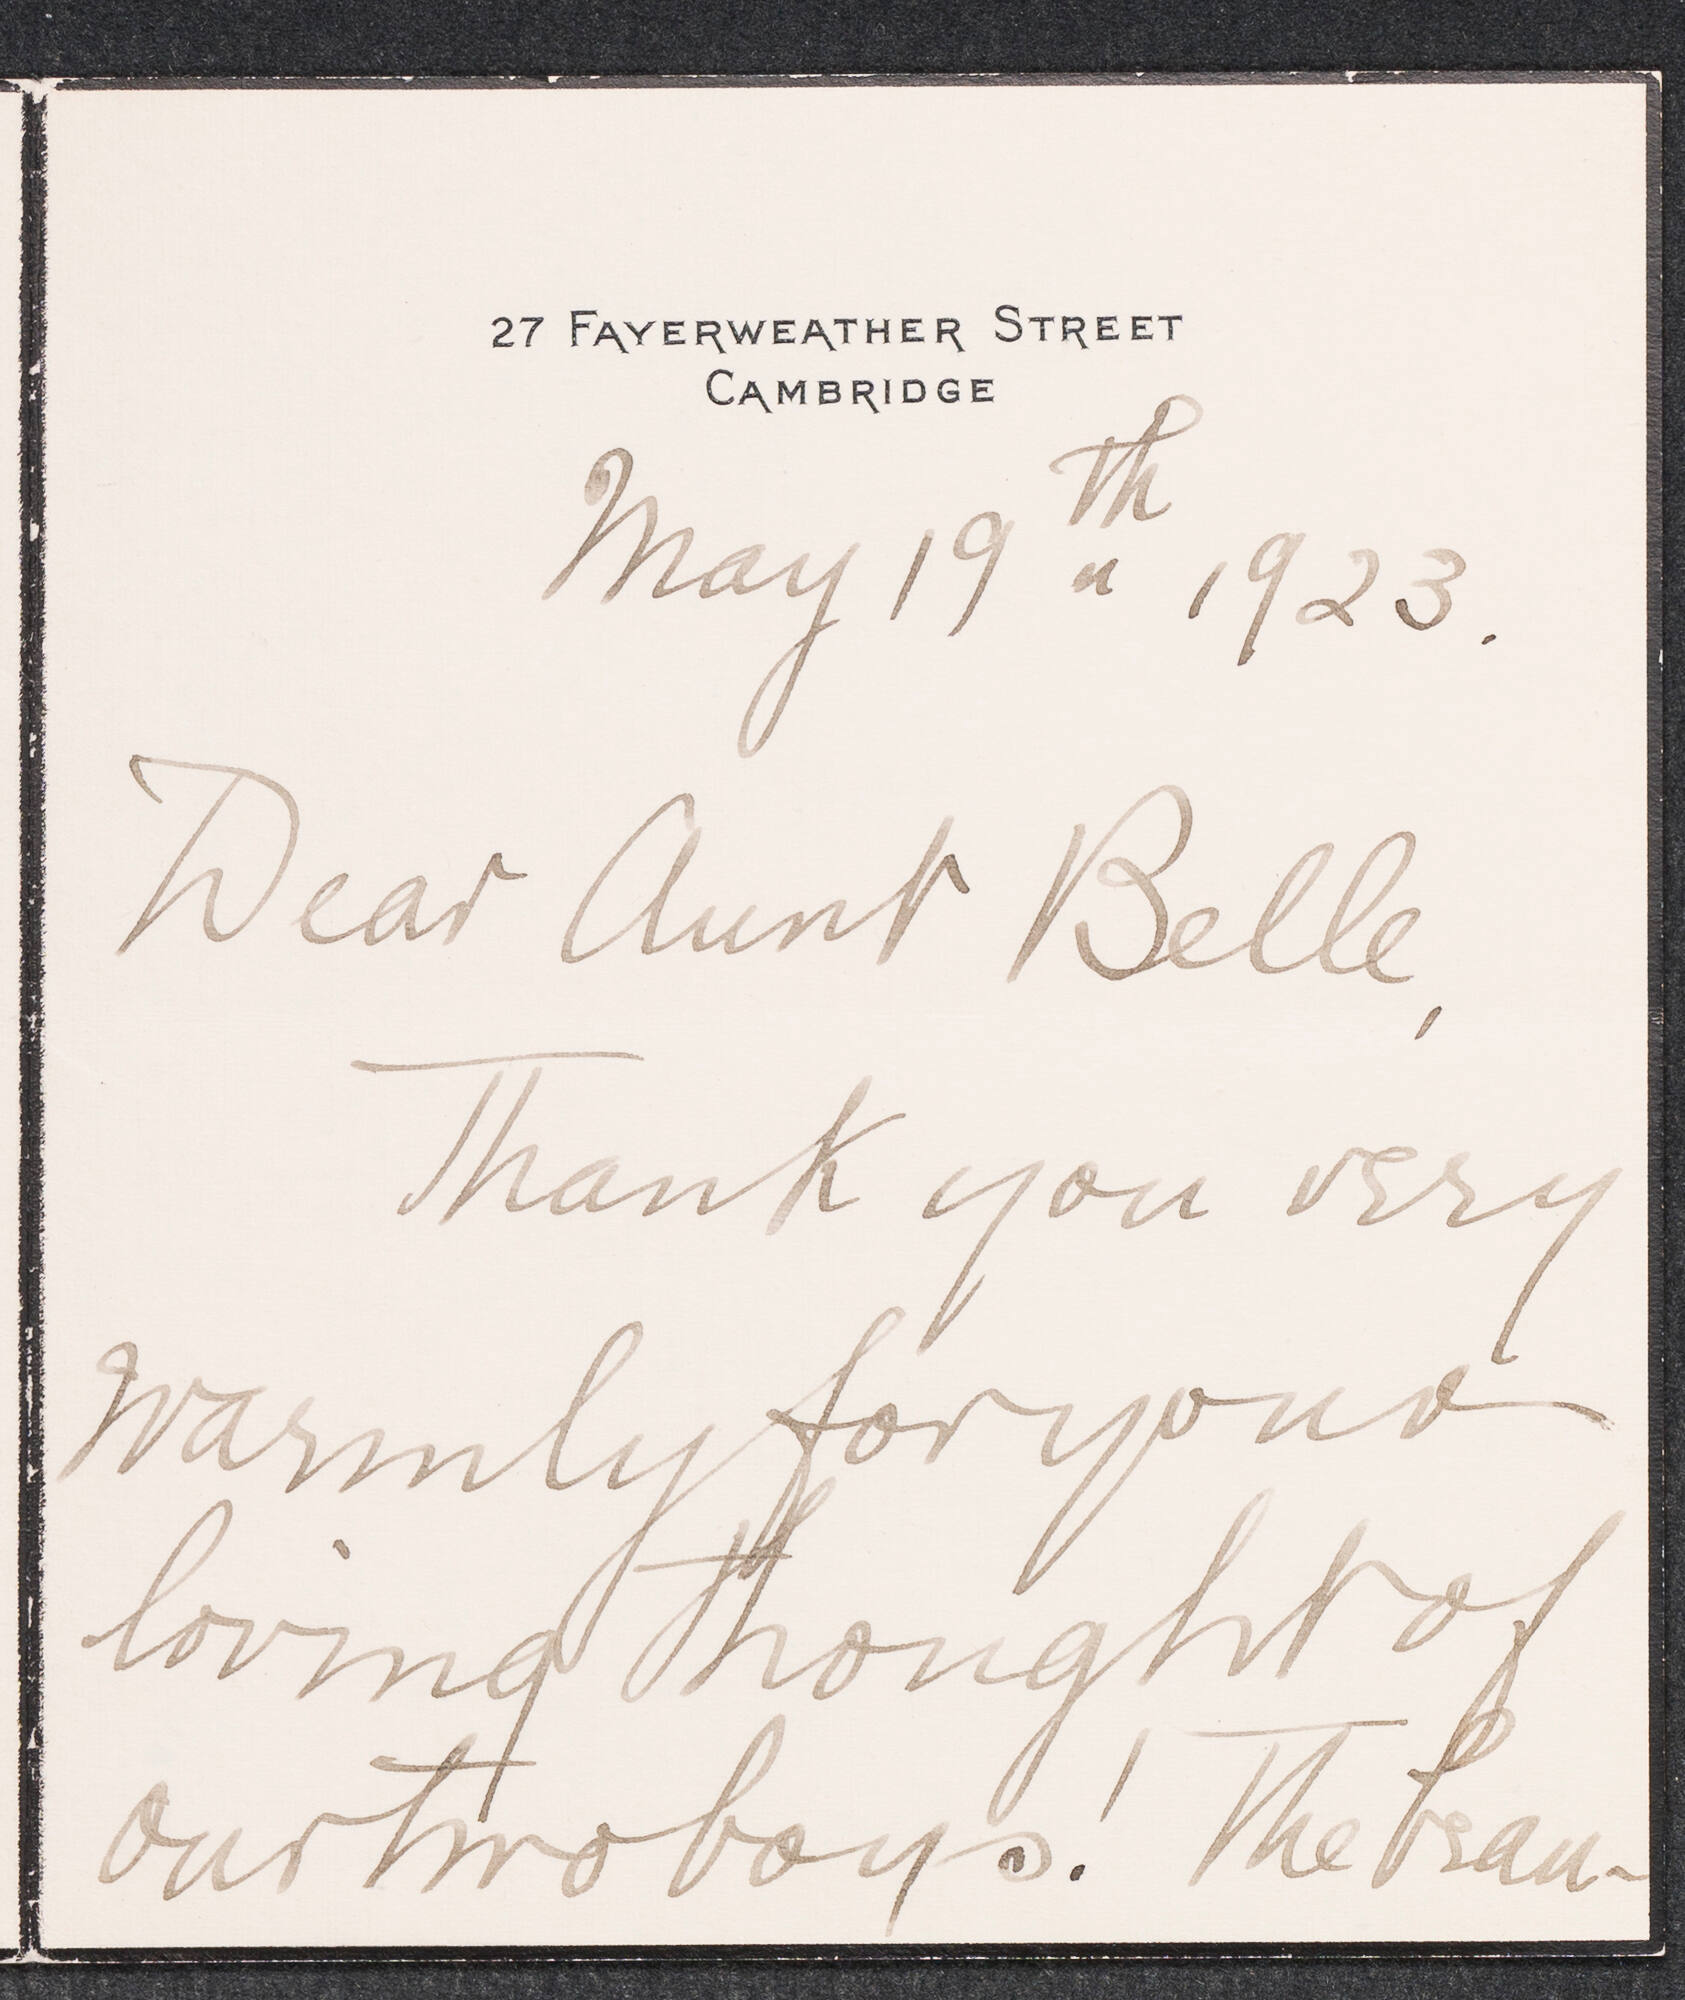 27 FAYERWEATHER STREET
CAMBRIDGE
May 19th 1923.
Dear Aunt Belle,
Thank you very
warmly for your
loving thought of
our two boys! The beau-